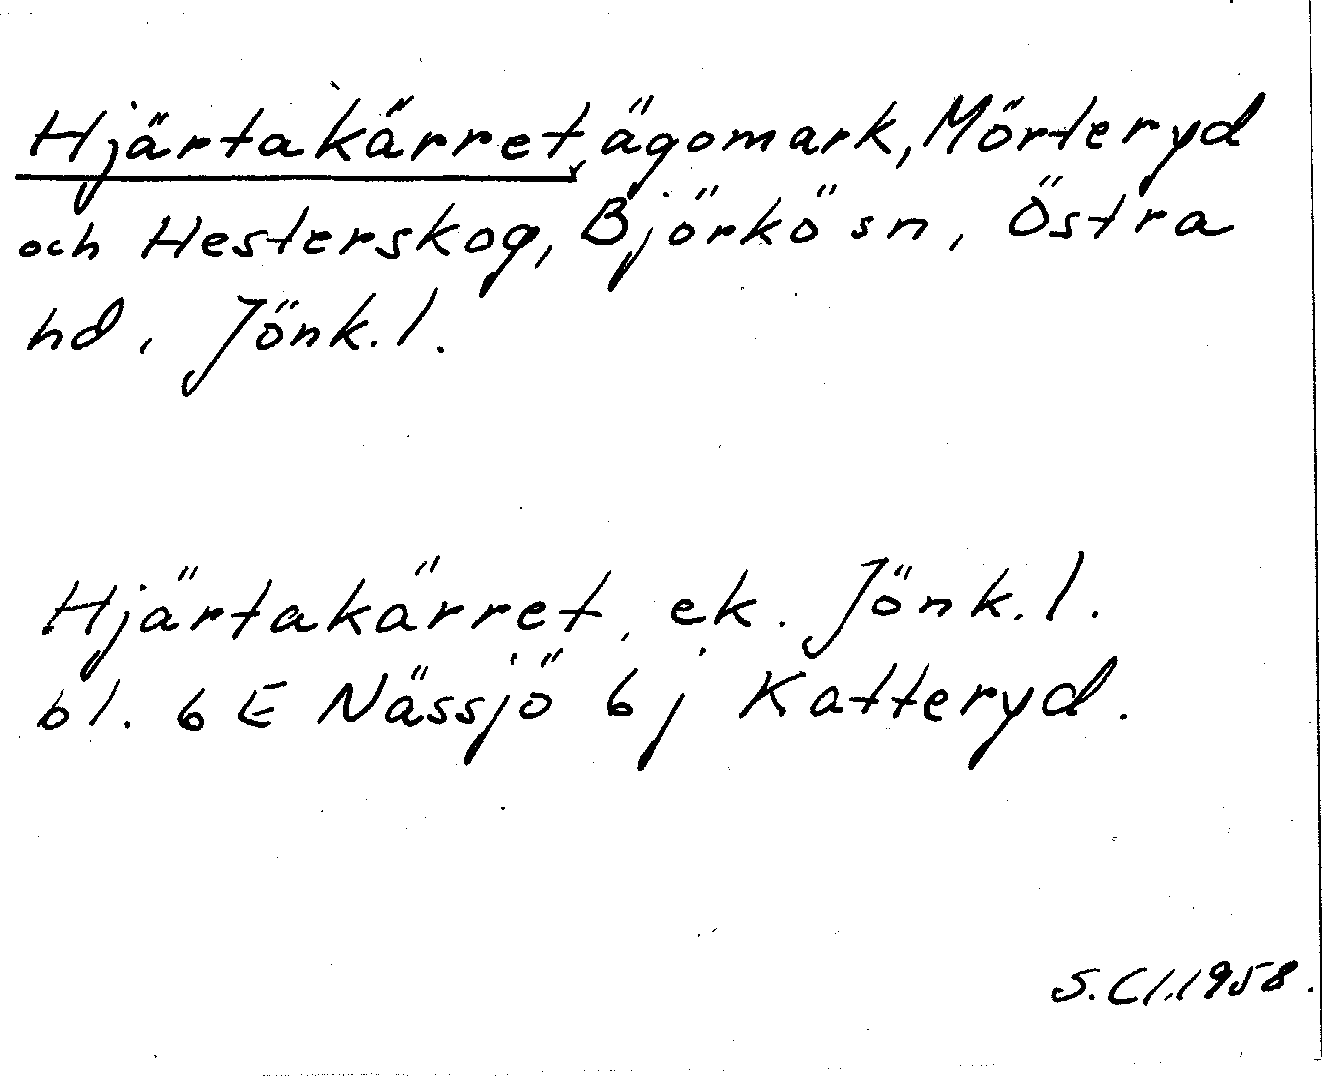 Hjärtakärret, ägomark, Mörteryd
och Hesterskog, Björkö sn, Östra
hd, Jönk. l.
Hjärtakärret, ek. Jönk. l.
bl. 6 E Nässjö 6 j Katteryd.
S. Cl. 1958.